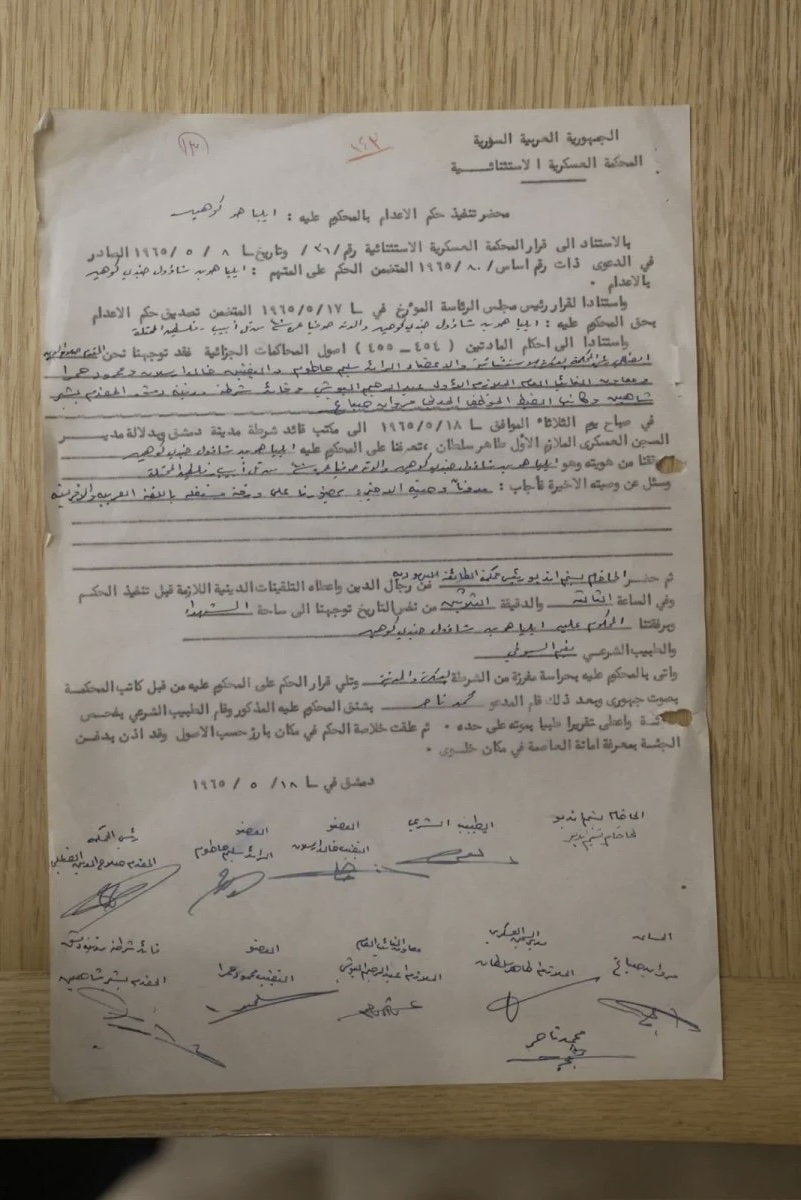 الجمهورية العربية السورية
المحكمة العسكرية الاستثنائية
١٤٣
١٣
محضر تنفيذ حكم الاعدام بالمحكوم عليه : ايلياهو كوهين
بالاستناد الى قرار المحكمة العسكرية الاستثنائية رقم /٣٦/ وتاريخ ٨ / ٥ / ١٩٦٥ الصادر
في الدعوى ذات رقم اساس /٨٠/ ١٩٦٥ المتضمن الحكم على المتهم : ايلياهو بن شاؤول جندي كوهين
بالاعدام .
واستنادا لقرار رئيس مجلس الرئاسة المؤرخ في ١٩٦٥/٥/١٧ المتضمن تصديق حكم الاعدام
بحق المحكوم عليه : ايلياهو بن شاؤول جندي كوهين والدته صوفيا من تل أبيب فلسطين المحتلة
واستنادا الى احكام المادتين ( ٤٥٤ ــ ٤٥٥ ) اصول المحاكمات الجزائية فقد توجهنا نحن المقدم صلاح الدين
والاعضاء الرائد سليم حاطوم والنقيبين خالد ارسلان ومحمود حمرا
ومعاون النائب العام الملازم الأول عبد الرحيم وقائد شرطة مدينة دمشق المقدم بشير
شاهين وكاتب الضبط الموظف المدني مروان صباغ
في صباح يوم الثلاثاء الموافق ١٩٦٥/٥/١٨ الى مكتب قائد شرطة مدينة دمشق وبدلالة مدير
السجن العسكرى الملازم الاول طاهر سلطان ، تعرفنا على المحكوم عليه ايلياهو بن شاؤول جندي كوهين
من هويته وهو ايلياهو بن شاؤول جندي كوهين والدته صوفيا من تل أبيب فلسطين المحتلة
وسئل عن وصيته الاخيرة فأجاب : مدوناً وصيته الاخيرة بحضورنا على ورقة مستقلة باللغة العربية والافرنسية
ثم حضر الحاخام نسيم اندبو رئيس محكمة الطائفة اليهودية من رجال الدين واعطاه التلقينات الدينية اللازمة قبل تنفيذ الحكم
وفي الساعة الثالثة والدقيقة من نفس التاريخ توجهنا الى ساحة الشهداء
وبرفقتنا المحكوم عليه ايلياهو بن شاؤول جندي كوهين
والطبيب الشرعي
واتى بالمحكوم عليه بحراسة مفرزة من الشرطة العسكرية والمدنية وتلي قرار الحكم على المحكوم عليه من قبل كاتب المحكمة
بصوت جهورى وبعد ذلك قام المدعو محمد ناصر بشنق المحكوم عليه المذكور وقام الطبيب الشرعي بفحص
واعطى تقريرا طبيا بموته على حده . ثم علقت خلاصة الحكم في مكان بارز حسب الاصول وقد اذن بدفن
الجثة بمعرفة امانة العاصمة في مكان خلوي .
دمشق في ١٨ / ٥ / ١٩٦٥
الحاخام نسيم اندبو
الطبيب الشرعي
العضو
النقيب خالد ارسلان
العضو
الرائد سليم حاطوم
رئيس المحكمة
المقدم صلاح الدين
مروان صباغ
مدير السجن العسكري
الملازم طاهر سلطان
معاون النائب العام
الملازم عبد الرحيم
العضو
النقيب محمود حمرا
قائد شرطة مدينة دمشق
المقدم بشير شاهين
محمد ناصر